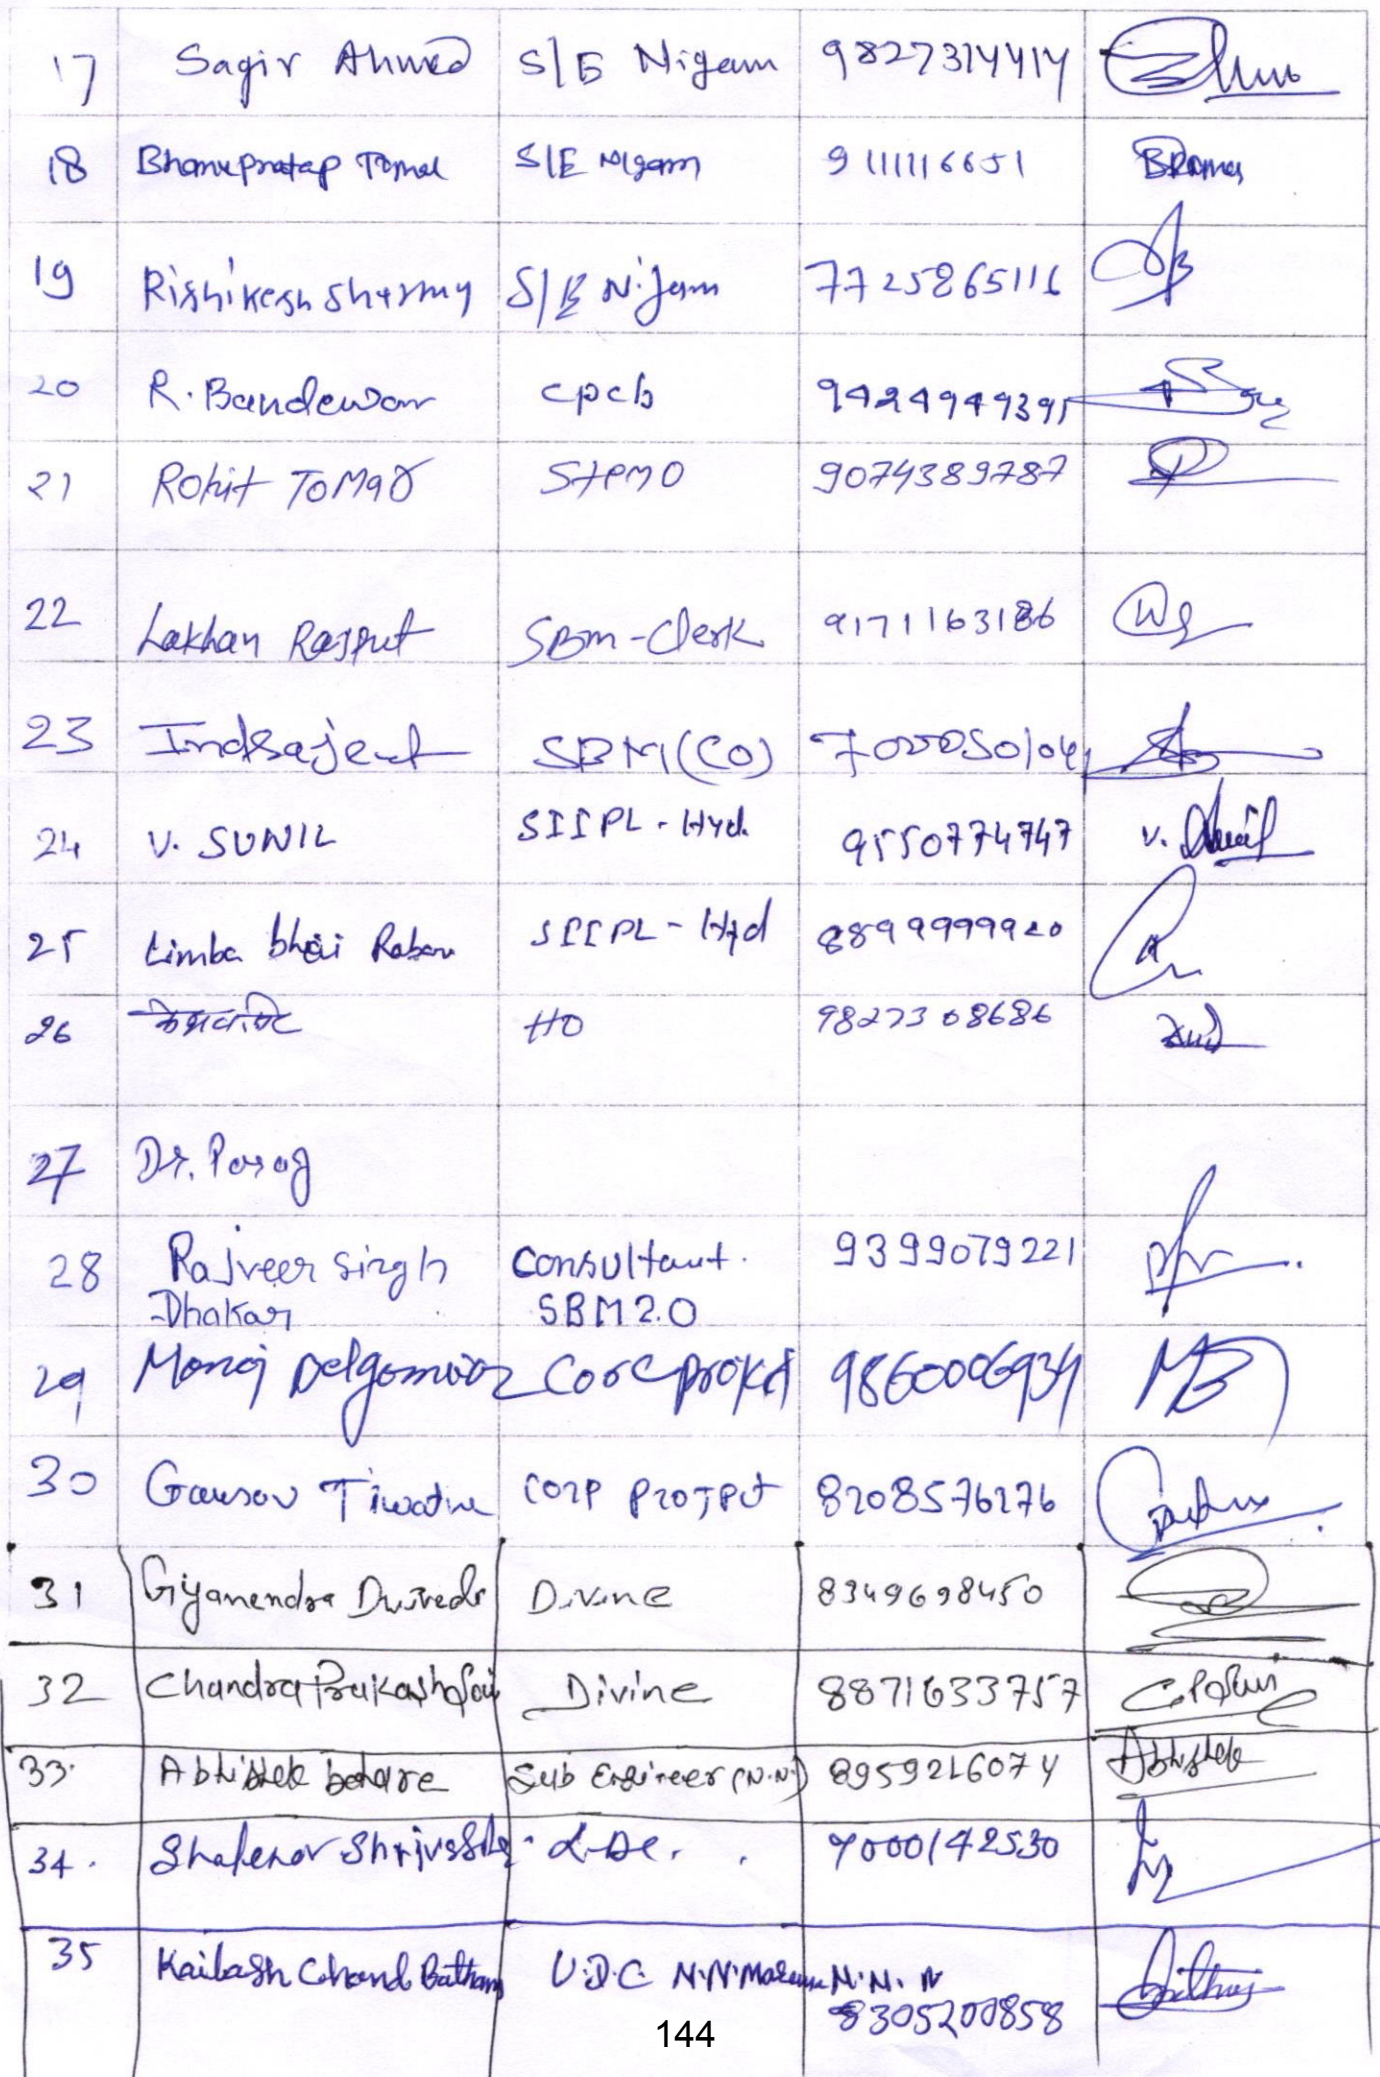 17 Sagir Ahmed S/E Nigam 9827314414
18 Bhanupratap Tomar S/E Nigam 9111116651
19 Rishikesh Sharmy S/E Nigam 7725865116
20 R. Bandewar cpcb 9424949391
21 Rohit ToMar 9074389787
22 Lakhan Rajput SBm-Clerk 9171163186
23 Indrajeet SBM(CO)
24 V. SUNIL SIIPL - Hyd. 9550774747 V. Sunil
25 Limba bhai Rabari SIIPL - Hyd 8899999920
26 HO 9827308686
27 Dr. Parag
28 Rajveer Singh Consultant. 9399079221
Dhakar SBM 2.0
29 Manoj 9860006934
30 Gaurav 8208576276
31 Gyanendra Dwivedi Divine 8349698450
32 Chandra Prakash Divine 8871633757
33. Abhishek Sub Engineer (N.N.) 8959216074 Abhishek
34. 7000142530
35 Kailash Chand Batham U.D.C N.N. N.N.
8305200858
144